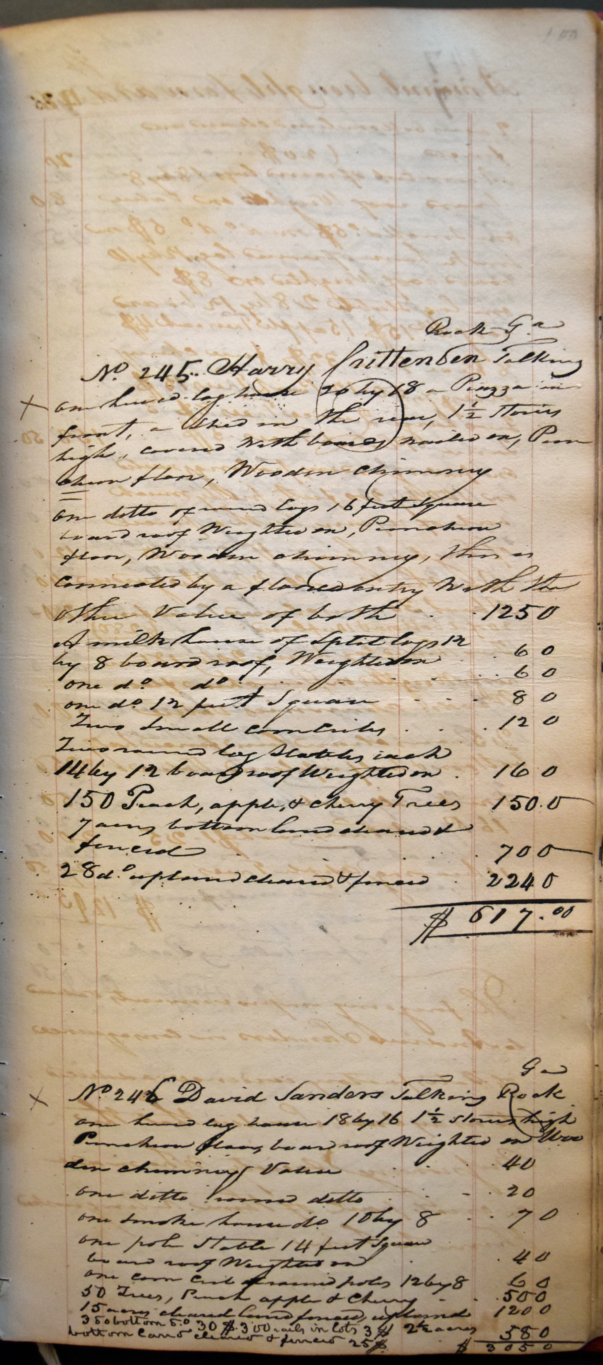 Rock Ga
No 245. Harry Crittenden Talking
one hewed log house 30 by 18 a Piazza in
front, a shed in the rear, 1½ stories
high, covered with boards nailed on, Pun
cheon floor, Wooden chimney
one ditto of round logs 16 feet square
board roof Weighted on, Puncheon
floor, Wooden chimney, this is
connected by a floored entry with the
other Value of both 1250
A milk house of split logs 12
by 8 board roof, Weighted on 60
one do. do. 60
one do 12 feet square 80
Two small corn cribs 120
Two round log stables each
14 by 12 board roof Weighted on 160
150 Peach, apple, & cherry Trees 150.0
7 acres bottom land cleared &
fenced 700
28 do upland cleared & fenced 2240
$ 617.00
Ga
No 246 David Sanders Talking Rock
one hewed log house 18 by 16 1½ stories high
Puncheon floor, board roof Weighted on Woo
den chimney Value 40
one ditto round ditto 20
one smoke house do. 10 by 8 70
one pole Stable 14 feet square
board roof Weighted on 40
one corn crib of round poles 12 by 8 60
50 Trees, Peach apple & Cherry 500
15 acres cleared land fenced, upland 1200
350 bottom 5.0 30 $ 300 rails in lots 3 $ 2½ acres
bottom land cleared & fenced 25 $ 580
$ 305 0